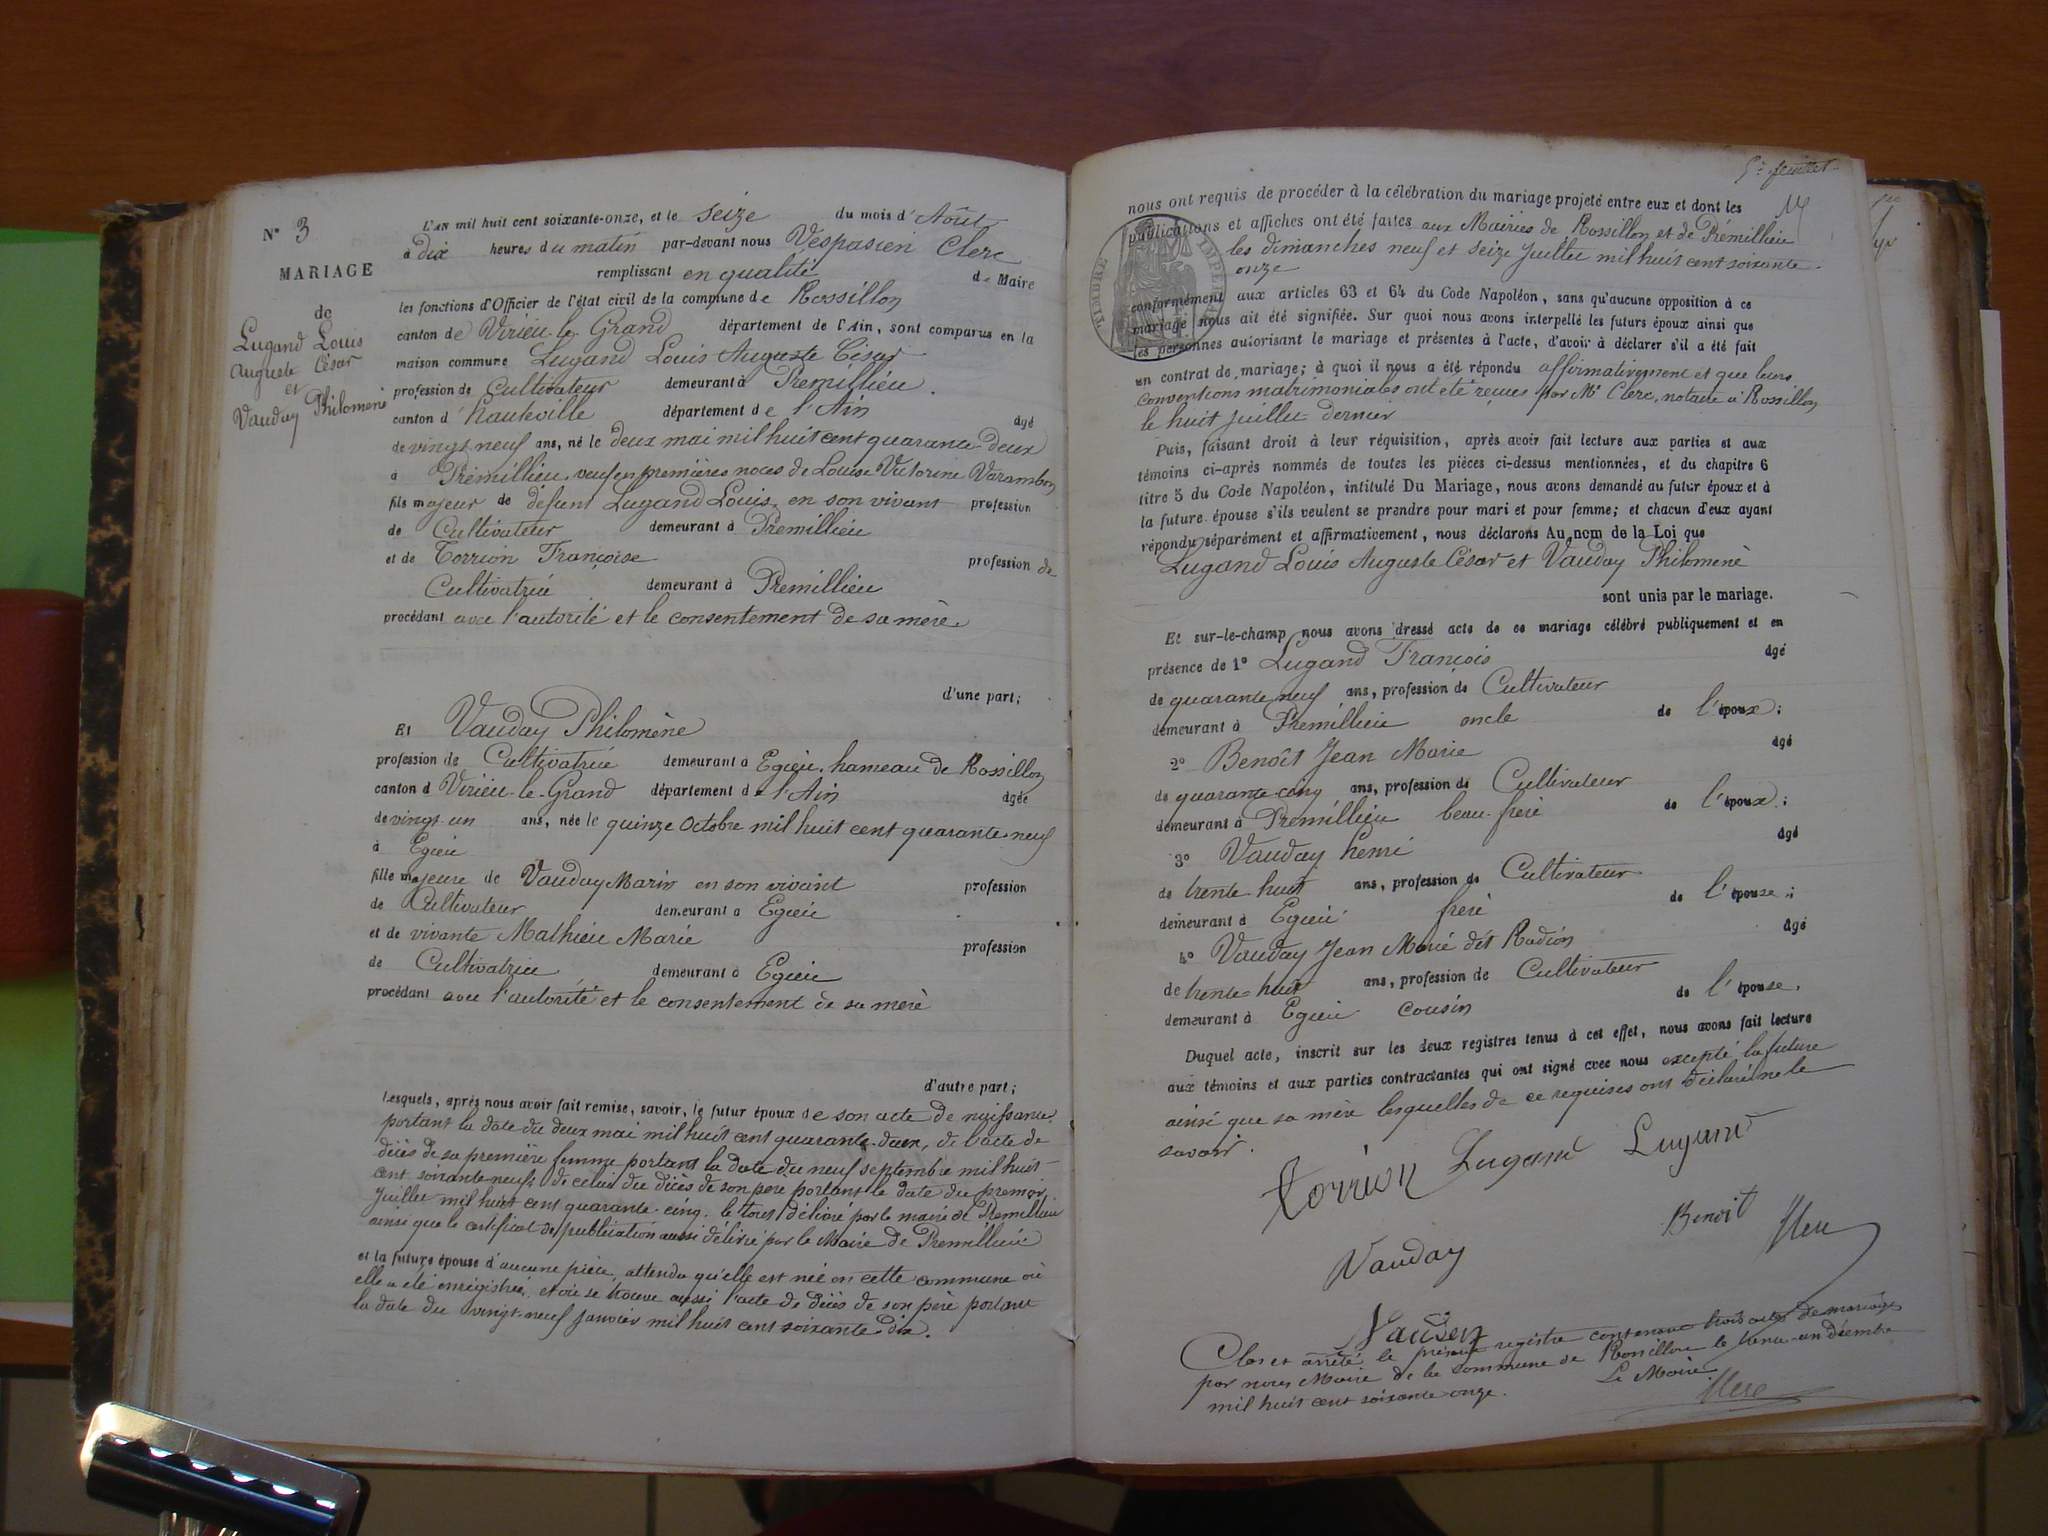 N° 3
MARIAGE
de
Lugand Louis
Auguste César
et
Vauday Philomène
L'AN mil huit cent soixante-onze, et le seize du mois d'Août
à dix heures du matin par-devant nous Vespasien Clerc
remplissant en qualité de Maire
les fonctions d'Officier de l'état civil de la commune de Rossillon
canton de Virieu-le-Grand département de l'Ain, sont comparus en la
maison commune Lugand Louis Auguste César
profession de Cultivateur demeurant à Prémillieu
canton d'hauteville département de l'Ain âgé
de vingt neuf ans, né le deux mai mil huit cent quarante-deux
à Prémillieu, veuf en premières noces de Louise Victorine Varambon
fils majeur de défunt Lugand Louis, en son vivant profession
de Cultivateur demeurant à Premillieu
et de Torrion Françoise profession de
Cultivatrice demeurant à Premillieu
procédant avec l'autorité et le consentement de sa mère
d'une part;
Et Vauday Philomène
profession de Cultivatrice demeurant à Egieu, hameau de Rossillon
canton d Virieu-le-Grand département de l'Ain âgée
de vingt un ans, née le quinze Octobre mil huit cent quarante-neuf
à Egieu
fille majeure de Vauday Marin en son vivant profession
de Cultivateur demeurant à Egieu
et de vivante Mathieu Marie profession
de Cultivatrice demeurant à Egieu
procédant avec l'autorité et le consentement de sa mère
d'autre part;
Lesquels, après nous avoir fait remise, savoir, le futur époux de son acte de naissance
portant la date du deux mai mil huit cent quarante-deux, de l'acte de
décès de sa première femme portant la date du neuf septembre mil huit-
cent soixante-neuf, de celui du décès de son père portant le date du premier
Juillet mil huit cent quarante-cinq. le tout délivré par le maire de Premillieu
ainsi que le certificat de publication aussi délivré par le Maire de Premillieu
et la future épouse d'aucune pièce, attendu qu'elle est née en cette commune où
elle a été enregistrée, et où se trouve aussi l'acte de décès de son père portant
la date du vingt-neuf janvier mil huit cent soixante-dix.
5e feuillet
nous ont requis de procéder à la célébration du mariage projeté entre eux et dont les
publications et affiches ont été faites aux Mairies de Rossillon et de Prémillieu
les dimanches neuf et seize Juillet mil huit cent soixante-
onze
TIMBRE IMPÉRIAL
conformément aux articles 63 et 64 du Code Napoléon, sans qu'aucune opposition à ce
mariage nous ait été signifiée. Sur quoi nous avons interpellé les futurs époux ainsi que
les personnes autorisant le mariage et présentes à l'acte, d'avoir à déclarer s'il a été fait
un contrat de mariage; à quoi il nous a été répondu affirmativement et que leurs
conventions matrimoniales ont été reçues par Me Clerc, notaire à Rossillon
le huit juillet dernier
Puis, faisant droit à leur réquisition, après avoir fait lecture aux parties et aux
témoins ci-après nommés de toutes les pièces ci-dessus mentionnées, et du chapitre 6
titre 5 du Code Napoléon, intitulé Du Mariage, nous avons demandé au futur époux et à
la future épouse s'ils veulent se prendre pour mari et pour femme; et chacun d'eux ayant
répondu séparément et affirmativement, nous déclarons Au nom de la Loi que
Lugand Louis Auguste César et Vauday Philomène
sont unis par le mariage.
Et sur-le-champ nous avons dressé acte de ce mariage célébré publiquement et en
présence de 1° Lugand François âgé
de quarante neuf ans, profession de Cultivateur
demeurant à Premillieu oncle de l'époux;
2° Benoît Jean Marie âgé
de quarante-cinq ans, profession de Cultivateur
demeurant à Premillieu beau-frère de l'époux;
3° Vauday henri âgé
de trente huit ans, profession de Cultivateur
demeurant à Egieu frère de l'épouse;
4° Vauday Jean Marie dit Radion âgé
de trente-huit ans, profession de Cultivateur
demeurant à Egieu cousin de l'épouse.
Duquel acte, inscrit sur les deux registres tenus à cet effet, nous avons fait lecture
aux témoins et aux parties contractantes qui ont signé avec nous excepté la future
ainsi que sa mère lesquelles de ce requises ont déclaré ne le
savoir.
Torrion Lugand Lugand
Benoit Clerc
Vauday
Vauday
Clos et arrêté le présent registre contenant trois actes de mariage
par nous Maire de la commune de Rossillon le trente-un décembre
mil huit cent soixante onze. Le Maire
Clerc